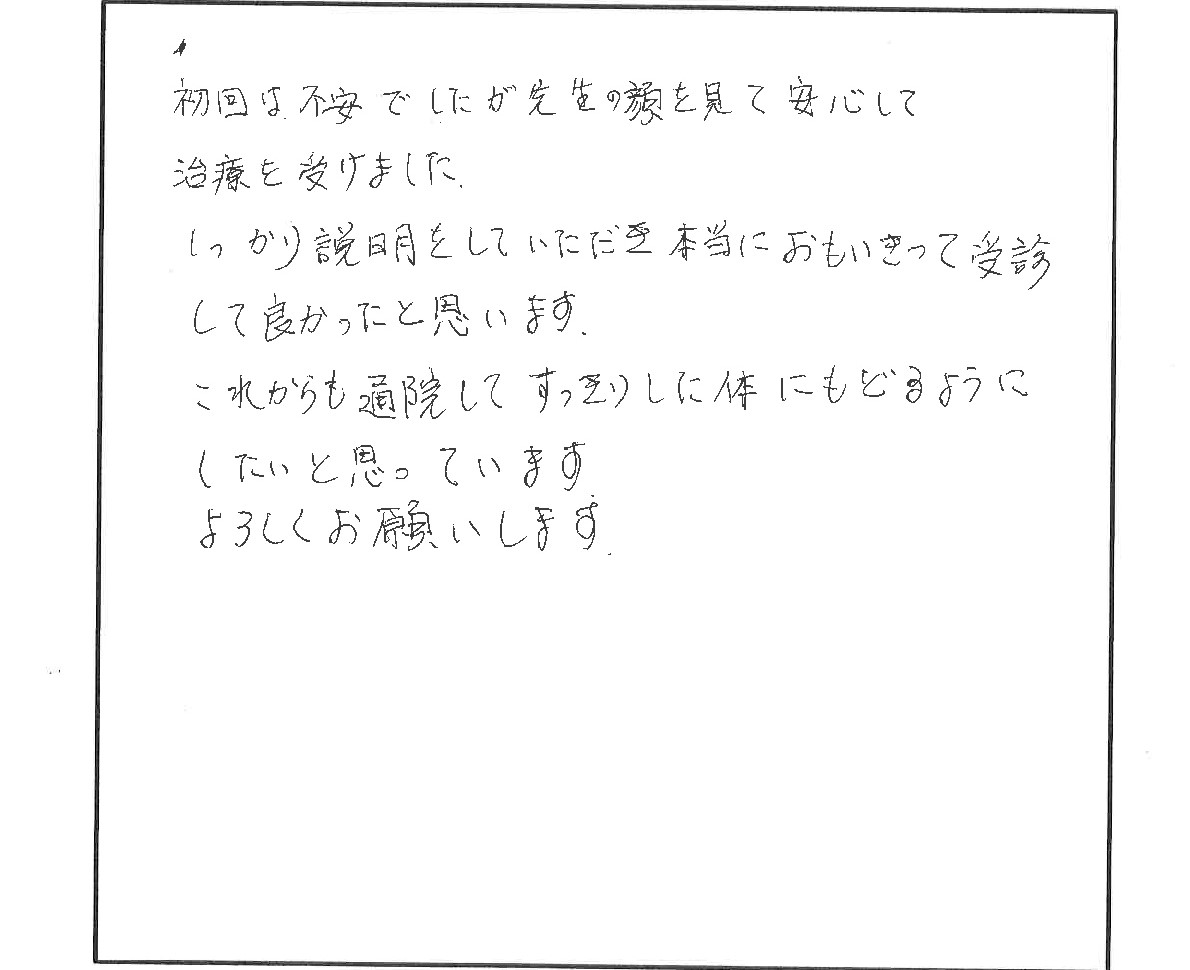 初回は不安でしたが先生の顔を見て安心して
治療を受けました.
しっかり説明をしていただき本当におもいきって受診
して良かったと思います.
これからも通院してすっきりした体にもどるように
したいと思っています
よろしくお願いします.